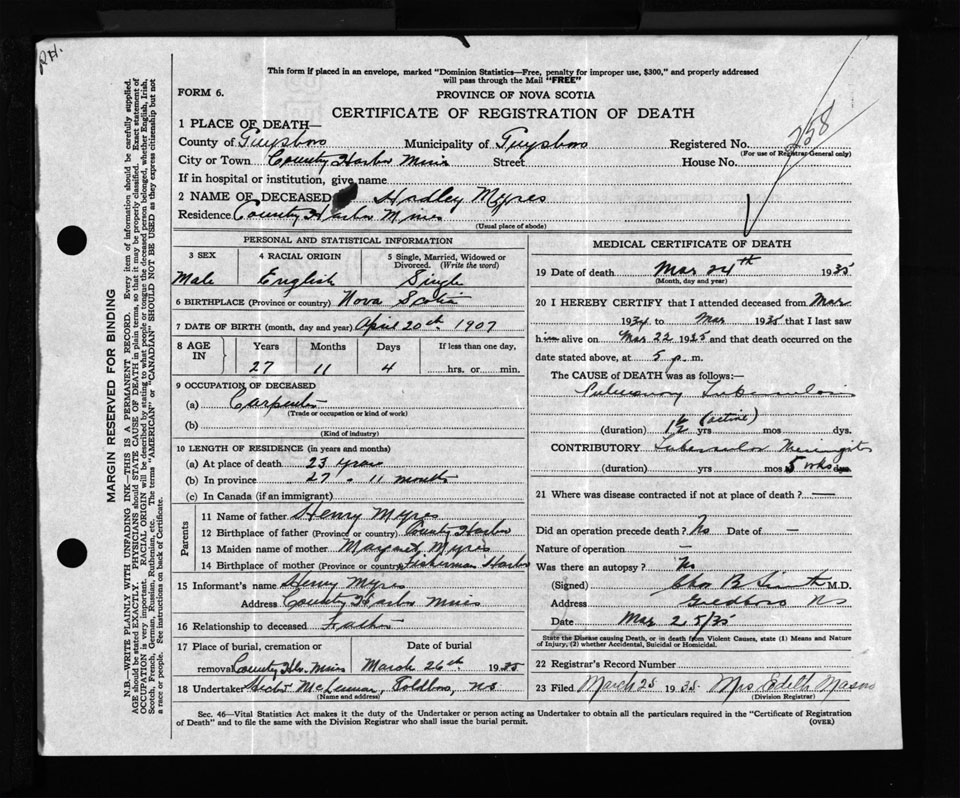 P.H.
This form if placed in an envelope, marked "Dominion Statistics—Free, penalty for improper use, $300," and properly addressed
will pass through the Mail "FREE"
FORM 6.
PROVINCE OF NOVA SCOTIA
CERTIFICATE OF REGISTRATION OF DEATH
258
1 PLACE OF DEATH—
County of Guysboro Municipality of Guysboro Registered No.
(For use of Registrar General only)
City or Town County Harbor Mines Street House No.
If in hospital or institution, give name
2 NAME OF DECEASED Hadley Myres
Residence County Harbor Mines
(Usual place of abode)
PERSONAL AND STATISTICAL INFORMATION
3 SEX 4 RACIAL ORIGIN 5 Single, Married, Widowed or Divorced. (Write the word)
Male English Single
6 BIRTHPLACE (Province or country) Nova Scotia
7 DATE OF BIRTH (month, day and year) April 20th 1907
8 AGE IN Years Months Days If less than one day,
27 11 4 hrs. or min.
9 OCCUPATION OF DECEASED
(a) Carpenter
(Trade or occupation or kind of work)
(b)
(Kind of industry)
10 LENGTH OF RESIDENCE (in years and months)
(a) At place of death 23 years
(b) In province 27 - 11 months
(c) In Canada (if an immigrant)
Parents
11 Name of father Henry Myres
12 Birthplace of father (Province or country) County Harbor
13 Maiden name of mother Margaret Myres
14 Birthplace of mother (Province or country) Fisherman Harbor
15 Informant's name Henry Myres
Address County Harbor Mines
16 Relationship to deceased Father
17 Place of burial, cremation or Date of burial
removal County Hbr. Mines March 26th 1935
18 Undertaker Hector McLennan, Goldboro, NS
(Name and address)
MEDICAL CERTIFICATE OF DEATH
19 Date of death Mar 24th 1935
(Month, day and year)
20 I HEREBY CERTIFY that I attended deceased from Mar
1934 to Mar 1935 that I last saw
him alive on Mar 22 1935 and that death occurred on the
date stated above, at 5 p. m.
The CAUSE of DEATH was as follows:—
Pulmonary Tuberculosis
(active)
(duration) 1½ yrs mos dys.
CONTRIBUTORY Tubercular Meningitis
(duration) yrs mos 5 wks dys.
21 Where was disease contracted if not at place of death? —
Did an operation precede death? No Date of —
Nature of operation —
Was there an autopsy? No
(Signed) Chas B Smith M.D.
Address Goldboro NS
Date Mar 25/35
State the Disease causing Death, or in death from Violent Causes, state (1) Means and Nature
of Injury, (2) whether Accidental, Suicidal or Homicidal.
22 Registrar's Record Number
23 Filed March 25 1935 Mrs Edith Mason
(Division Registrar)
Sec. 46—Vital Statistics Act makes it the duty of the Undertaker or person acting as Undertaker to obtain all the particulars required in the "Certificate of Registration
of Death" and to file the same with the Division Registrar who shall issue the burial permit.
(OVER)
MARGIN RESERVED FOR BINDING
N.B.—WRITE PLAINLY WITH UNFADING INK—THIS IS A PERMANENT RECORD. Every item of information should be carefully supplied.
AGE should be stated EXACTLY. PHYSICIANS should STATE CAUSE OF DEATH in plain terms, so that it may be properly classified. Exact statement of
OCCUPATION is very important. RACIAL ORIGIN will be described by stating to what people or tongue the deceased person belonged, whether English, Irish,
Scotch, French, German, Russian, Ruthenian, etc. The terms "AMERICAN" or "CANADIAN" SHOULD NOT BE USED as they express citizenship but not
a race or people. See instructions on back of Certificate.